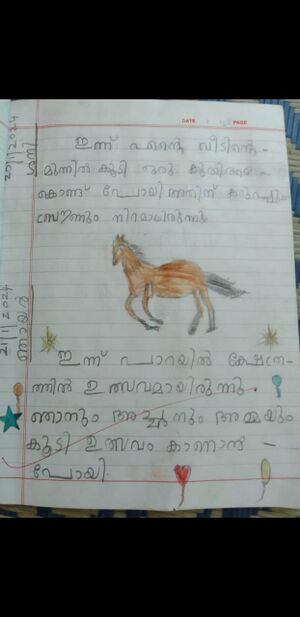 DATE PAGE
20/1/2024
ശനി
ഇന്ന് എന്റെ വീടിന്റെ -
മുന്നിൽ കൂടി ഒരു കുതിരയെ -
കൊണ്ട് പോയി അതിന് കറുപ്പും
ബ്രൗണും നിറമായിരുന്നു
21/1/2024
ഞായർ
ഇന്ന് പാറയിൽ ക്ഷേത്ര-
ത്തിൽ ഉത്സവമായിരുന്നു.
ഞാനും അച്ഛനും അമ്മയും
കൂടി ഉത്സവം കാണാൻ -
പോയി.